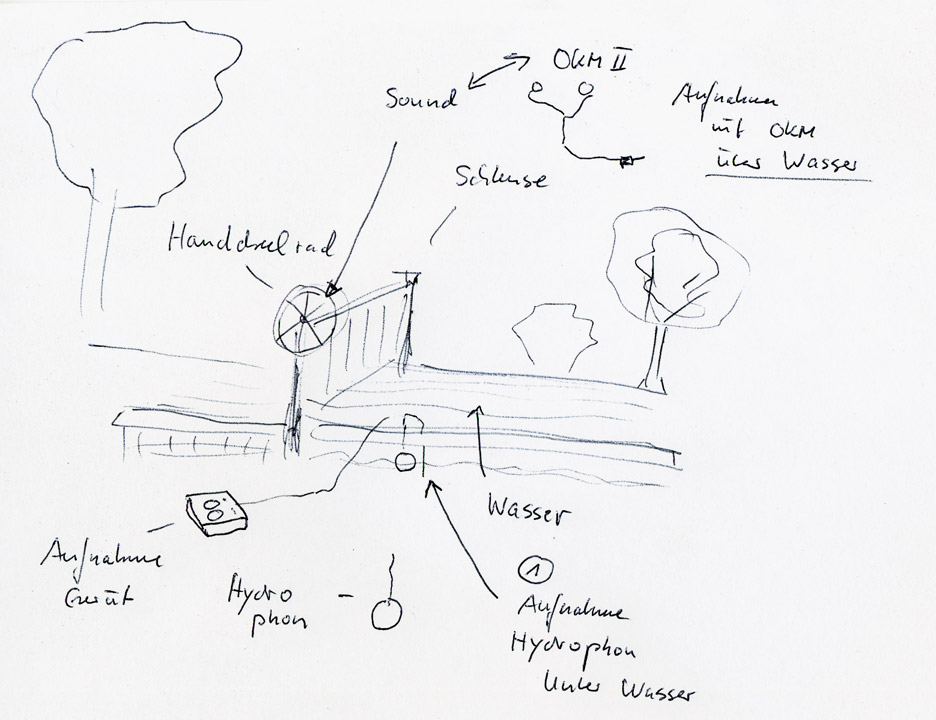 OKM II
Sound
Aufnahmen
mit OKM
über Wasser
Schleuse
Handdrehrad
Wasser
Aufnahme
Gerät
Hydro
phon
1
Aufnahme
Hydrophon
Unter Wasser